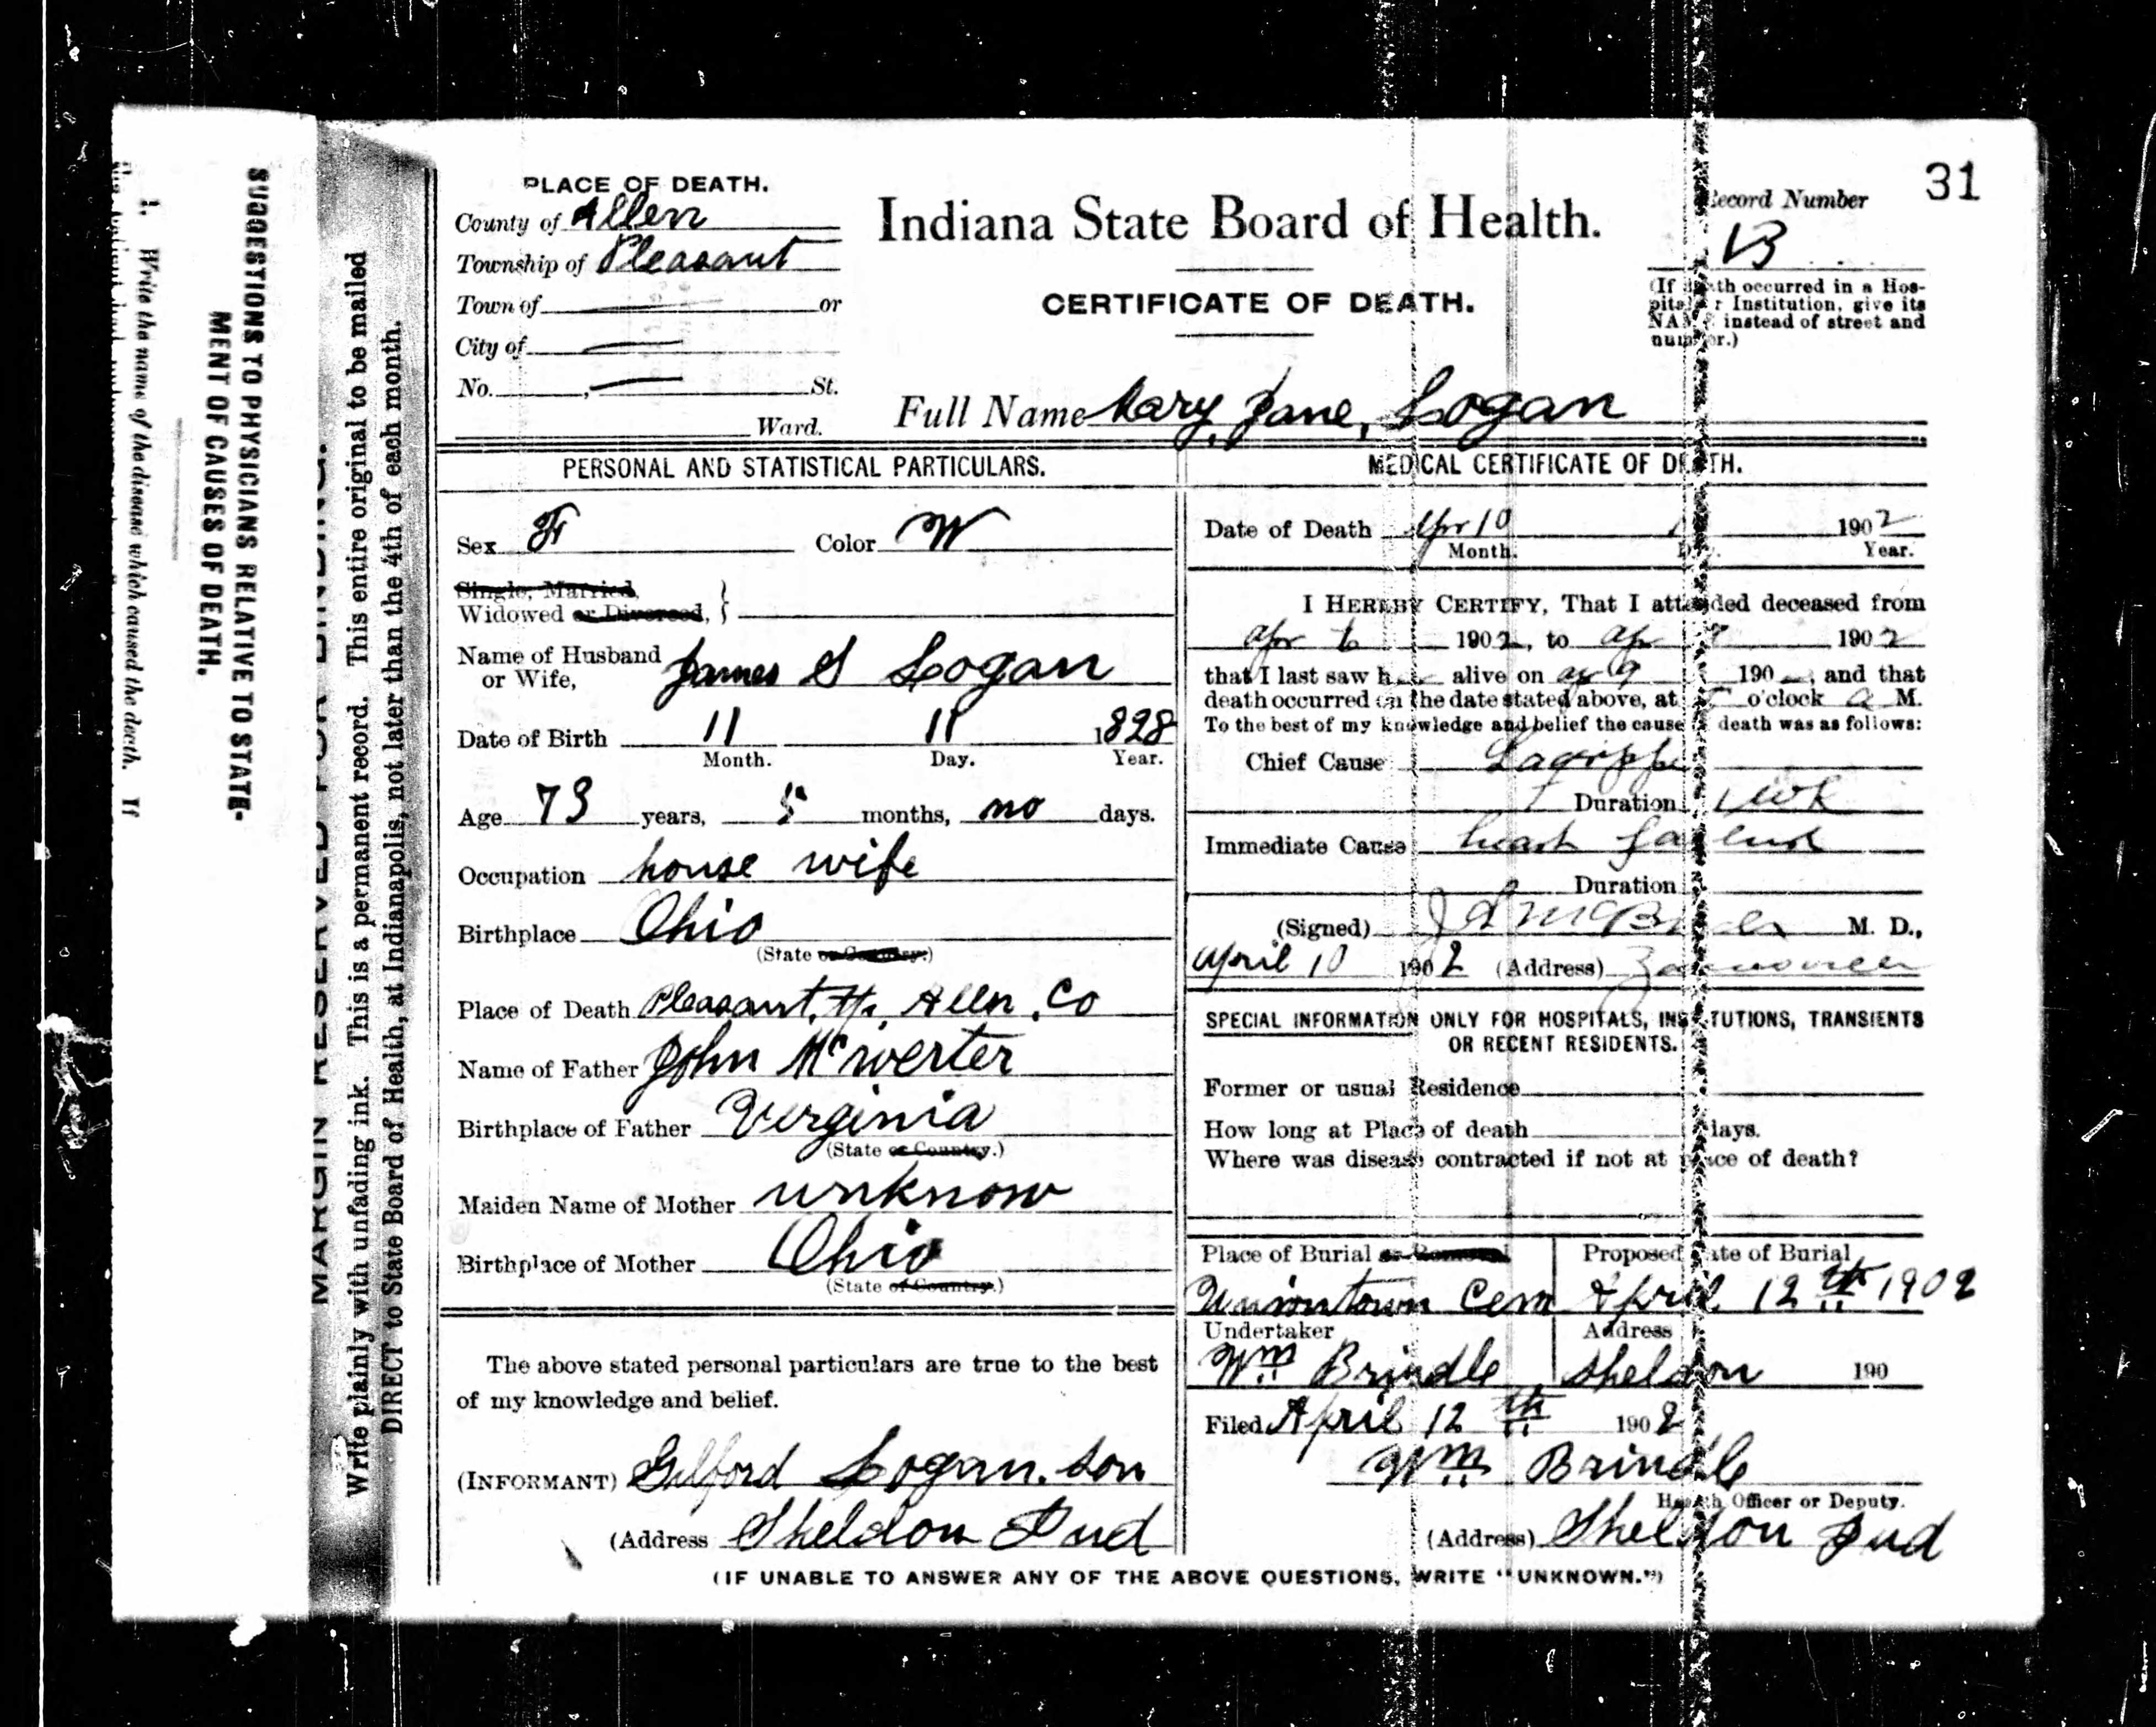 31
PLACE OF DEATH.
County of Allen
Township of Pleasant
Town of or
City of
No. , St.
Ward.
Indiana State Board of Health.
CERTIFICATE OF DEATH.
Record Number
13
(If death occurred in a Hos-
pital or Institution, give its
NAME instead of street and
number.)
Full Name Mary, Jane, Logan
PERSONAL AND STATISTICAL PARTICULARS.
Sex F Color W
Single, Married,
Widowed or Divorced, }
Name of Husband
or Wife, James S Logan
Date of Birth 11 11 1828
Month. Day. Year.
Age 73 years, 5 months, no days.
Occupation house wife
Birthplace Ohio
(State or Country.)
Place of Death Pleasant, Tp, Allen, Co
Name of Father John McWerter
Birthplace of Father Verginia
(State or Country.)
Maiden Name of Mother unknow
Birthplace of Mother Ohio
(State of Country.)
The above stated personal particulars are true to the best
of my knowledge and belief.
(INFORMANT) Gilford Logan. son
(Address Sheldon Ind
MEDICAL CERTIFICATE OF DEATH.
Date of Death Apr 10 1902
Month. Day. Year.
I HEREBY CERTIFY, That I attended deceased from
Apr 6 1902, to Apr 1902
that I last saw h alive on ap 9 190 , and that
death occurred on the date stated above, at o'clock a M.
To the best of my knowledge and belief the cause of death was as follows:
Chief Cause Lagrippe
Duration 1 wk
Immediate Cause heart failure
Duration
(Signed) M. D.,
April 10 1902 (Address)
SPECIAL INFORMATION ONLY FOR HOSPITALS, INSTITUTIONS, TRANSIENTS
OR RECENT RESIDENTS.
Former or usual Residence
How long at Place of death days.
Where was disease contracted if not at place of death?
Place of Burial or Removal
Uniontown Cem
Proposed Date of Burial
April 12th 1902
Undertaker
Wm Brindle
Address
Sheldon 190
Filed April 12th 1902
Wm Brindle
Health Officer or Deputy.
(Address) Sheldon Ind
(IF UNABLE TO ANSWER ANY OF THE ABOVE QUESTIONS, WRITE "UNKNOWN.")
MARGIN RESERVED FOR BINDING.
Write plainly with unfading ink. This is a permanent record. This entire original to be mailed
DIRECT to State Board of Health, at Indianapolis, not later than the 4th of each month.
SUGGESTIONS TO PHYSICIANS RELATIVE TO STATE-
MENT OF CAUSES OF DEATH.
1. Write the name of the disease which caused the death. If